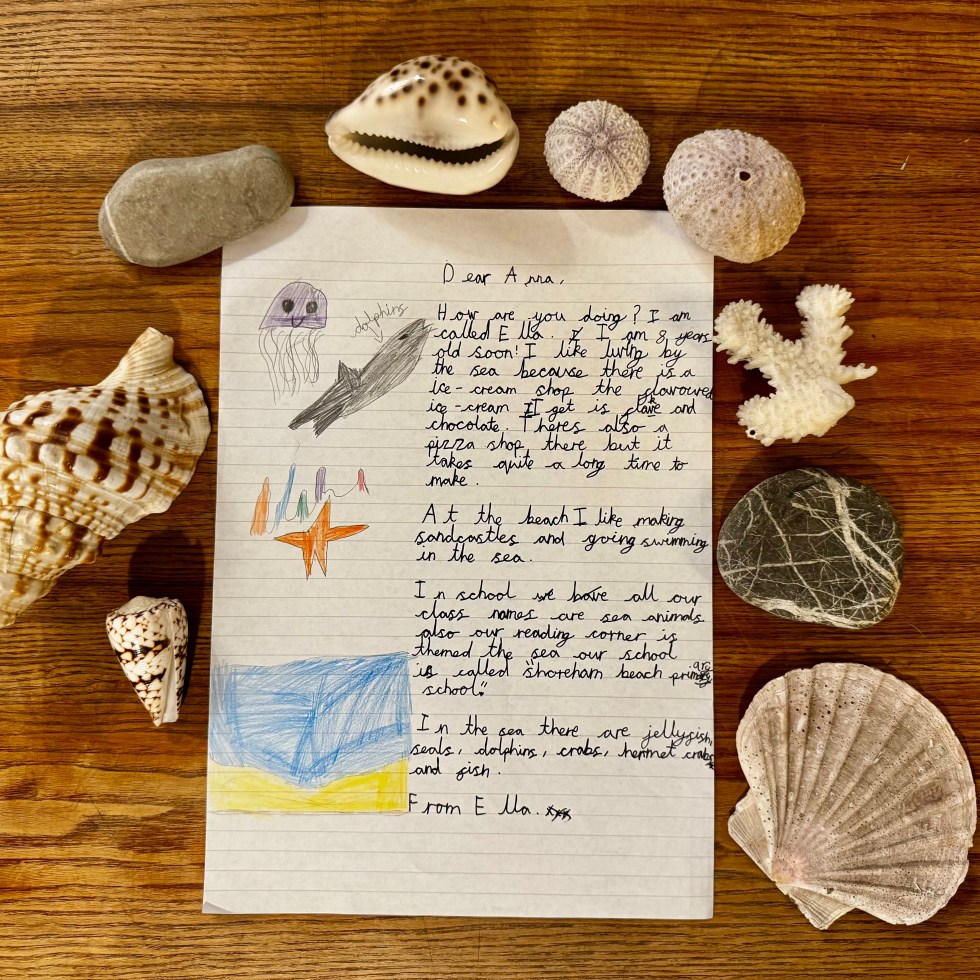 Dear Anna,
dolphins
How are you doing? I am
called Ella. I am 8 years
old soon! I like living by
the sea because there is a
ice-cream shop the flavoured
ice-cream I get is and
chocolate. Theres also a
pizza shop there but it
takes quite a long time to
make.
At the beach I like making
sandcastles and going swimming
in the sea.
In school we have all our
class names are sea animals
also our reading corner is
themed the sea our school
is called "Shoreham beach primary
school."
In the sea there are jellyfish,
seals, dolphins, crabs, hermet crabs
and fish.
From Ella. xxx